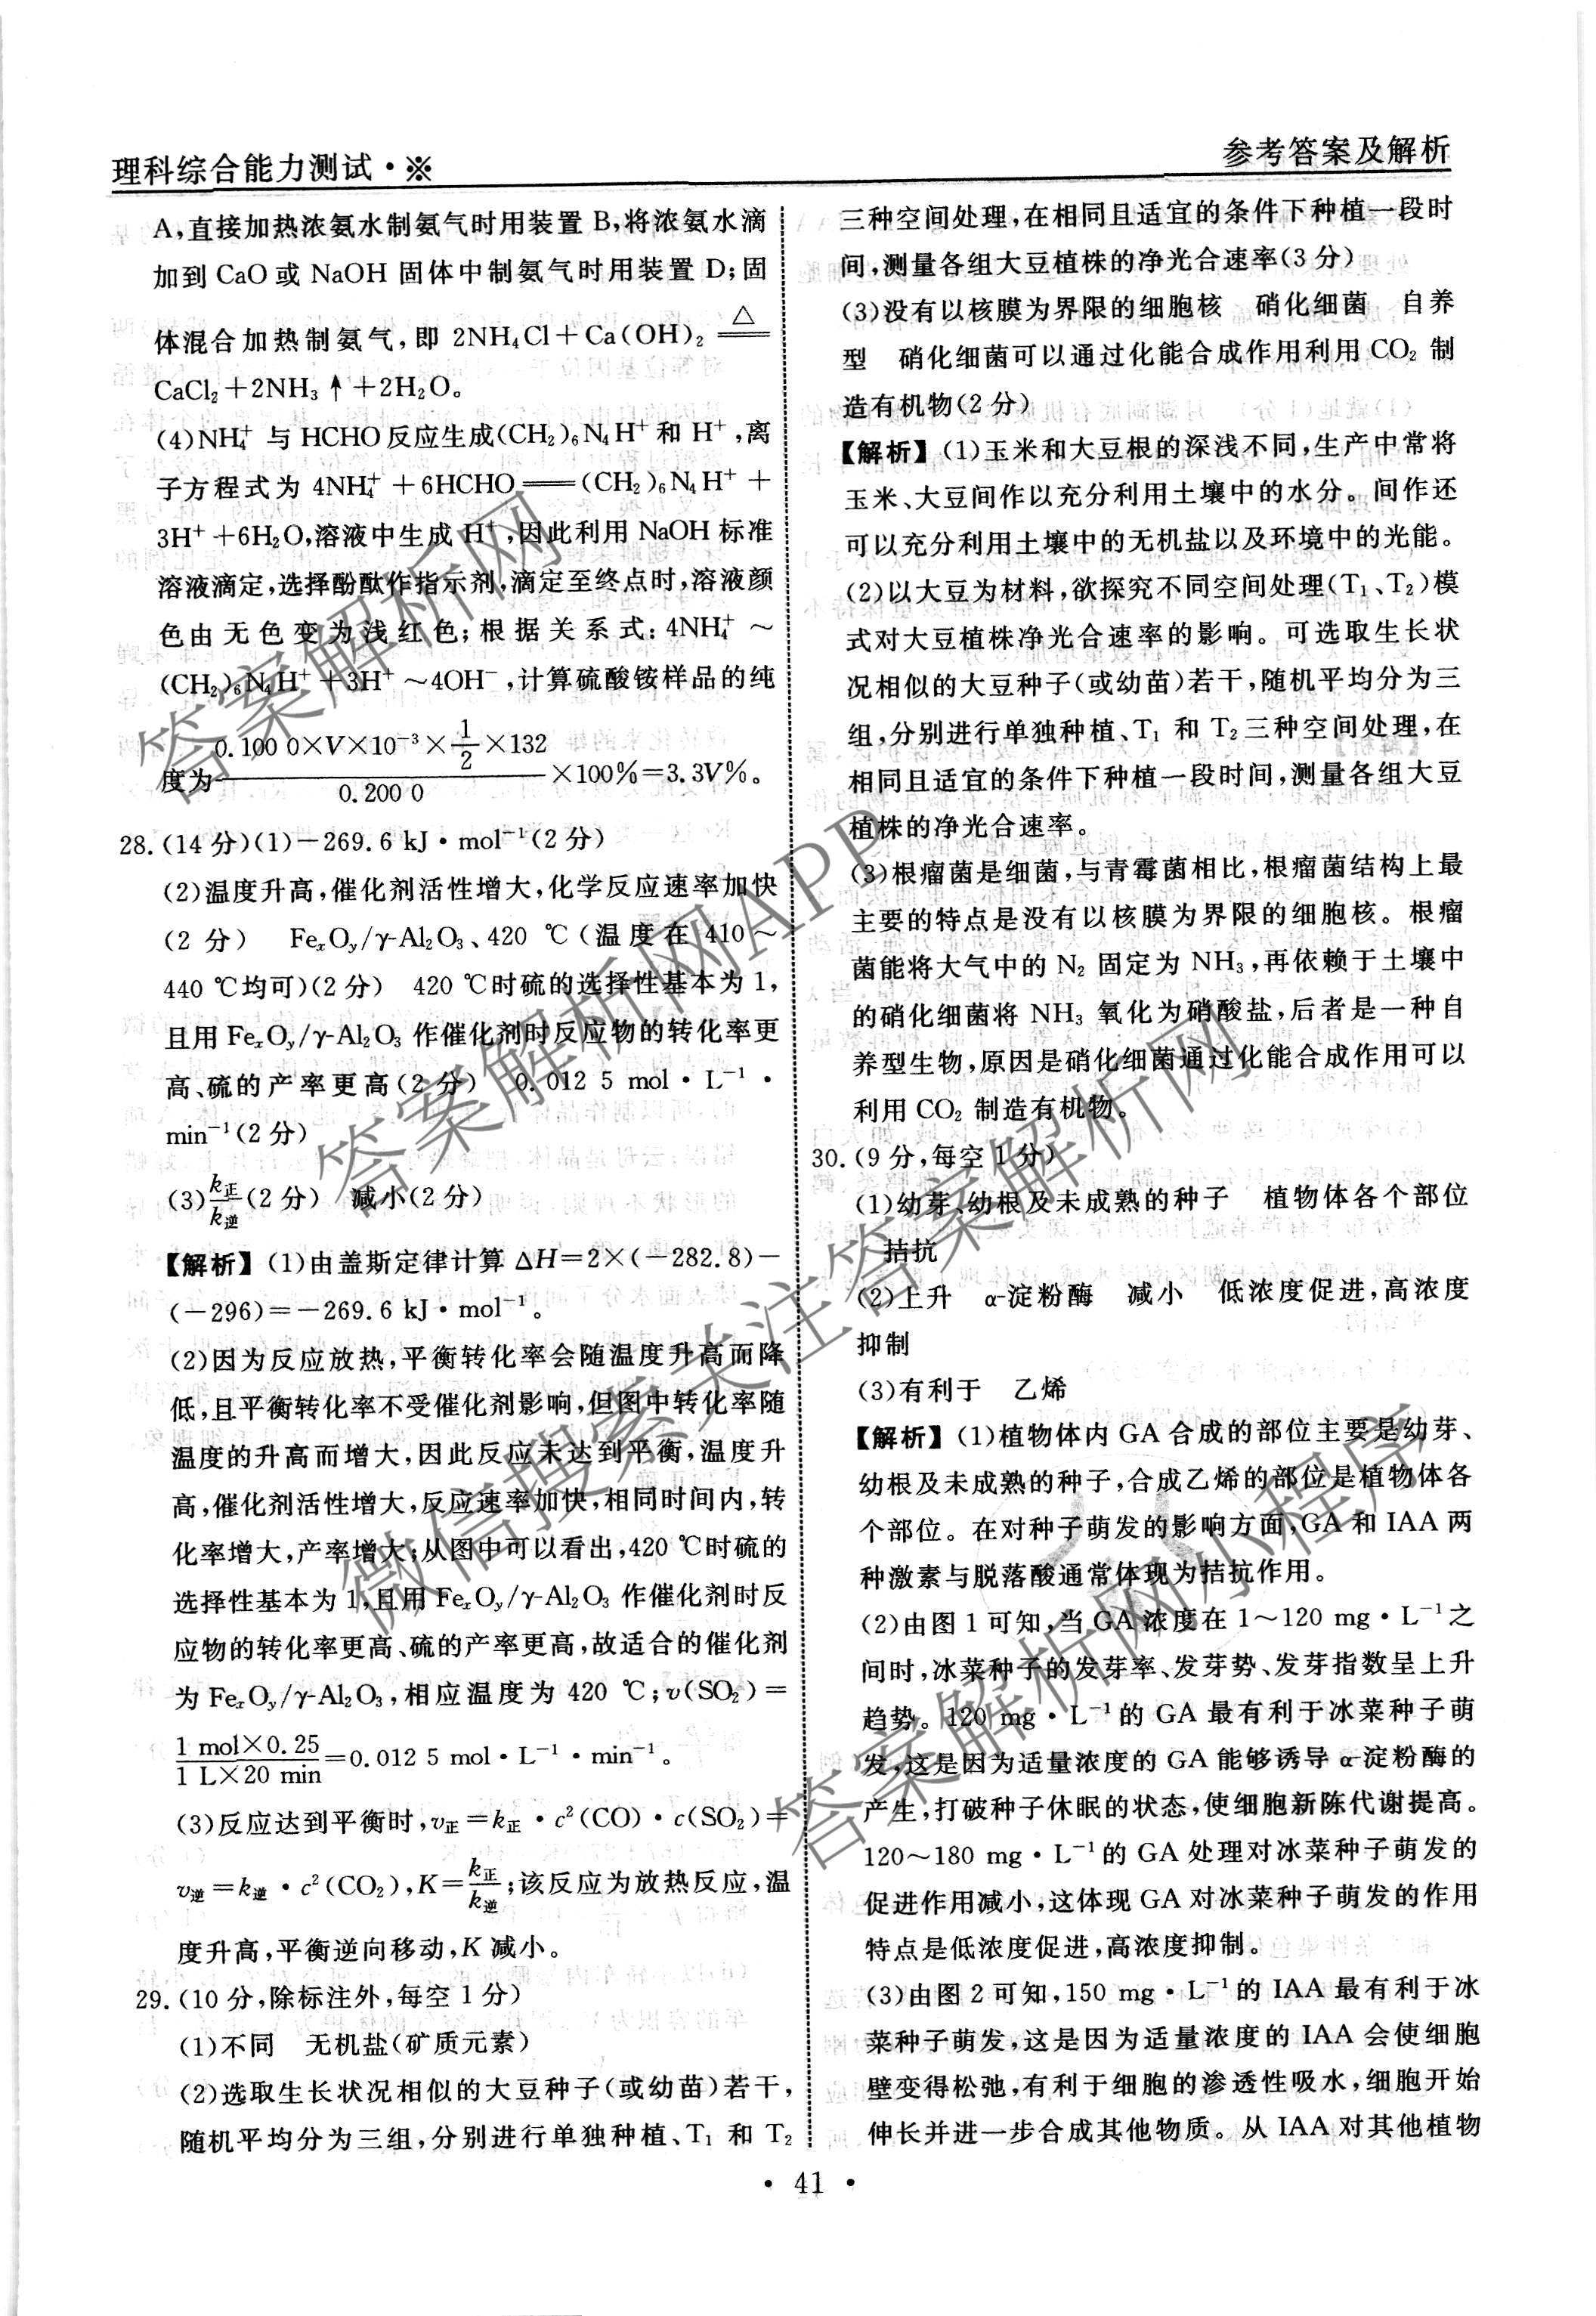 理科综合能力测试·※
参考答案及解析
A,直接加热浓氨水制氨气时用装置 B,将浓氨水滴
加到 CaO 或 NaOH 固体中制氨气时用装置 D;固
体混合加热制氨气,即 2NH₄Cl+Ca(OH)₂ ══△══
CaCl₂+2NH₃↑+2H₂O。
(4)NH₄⁺ 与 HCHO 反应生成(CH₂)₆N₄H⁺ 和 H⁺,离
子方程式为 4NH₄⁺+6HCHO══(CH₂)₆N₄H⁺+
3H⁺+6H₂O,溶液中生成 H⁺,因此利用 NaOH 标准
溶液滴定,选择酚酞作指示剂,滴定至终点时,溶液颜
色由无色变为浅红色;根据关系式:4NH₄⁺~
(CH₂)₆N₄H⁺+3H⁺~4OH⁻,计算硫酸铵样品的纯
度为 (0.100 0×V×10⁻³×1/2×132)/0.200 0 ×100%=3.3V%。
28.(14 分)(1)−269.6 kJ·mol⁻¹(2 分)
(2)温度升高,催化剂活性增大,化学反应速率加快
(2 分) FeₓOᵧ/γ-Al₂O₃、420 ℃(温度在 410~
440 ℃均可)(2 分) 420 ℃时硫的选择性基本为 1,
且用 FeₓOᵧ/γ-Al₂O₃ 作催化剂时反应物的转化率更
高、硫的产率更高(2 分) 0.012 5 mol·L⁻¹·
min⁻¹(2 分)
(3)k正/k逆(2 分) 减小(2 分)
【解析】(1)由盖斯定律计算 ΔH=2×(−282.8)−
(−296)=−269.6 kJ·mol⁻¹。
(2)因为反应放热,平衡转化率会随温度升高而降
低,且平衡转化率不受催化剂影响,但图中转化率随
温度的升高而增大,因此反应未达到平衡,温度升
高,催化剂活性增大,反应速率加快,相同时间内,转
化率增大,产率增大;从图中可以看出,420 ℃时硫的
选择性基本为 1,且用 FeₓOᵧ/γ-Al₂O₃ 作催化剂时反
应物的转化率更高、硫的产率更高,故适合的催化剂
为 FeₓOᵧ/γ-Al₂O₃,相应温度为 420 ℃;v(SO₂)=
(1 mol×0.25)/(1 L×20 min)=0.012 5 mol·L⁻¹·min⁻¹。
(3)反应达到平衡时,v正=k正·c²(CO)·c(SO₂)=
v逆=k逆·c²(CO₂),K=k正/k逆;该反应为放热反应,温
度升高,平衡逆向移动,K 减小。
29.(10 分,除标注外,每空 1 分)
(1)不同 无机盐(矿质元素)
(2)选取生长状况相似的大豆种子(或幼苗)若干,
随机平均分为三组,分别进行单独种植、T₁ 和 T₂
三种空间处理,在相同且适宜的条件下种植一段时
间,测量各组大豆植株的净光合速率(3 分)
(3)没有以核膜为界限的细胞核 硝化细菌 自养
型 硝化细菌可以通过化能合成作用利用 CO₂ 制
造有机物(2 分)
【解析】(1)玉米和大豆根的深浅不同,生产中常将
玉米、大豆间作以充分利用土壤中的水分。间作还
可以充分利用土壤中的无机盐以及环境中的光能。
(2)以大豆为材料,欲探究不同空间处理(T₁、T₂)模
式对大豆植株净光合速率的影响。可选取生长状
况相似的大豆种子(或幼苗)若干,随机平均分为三
组,分别进行单独种植、T₁ 和 T₂ 三种空间处理,在
相同且适宜的条件下种植一段时间,测量各组大豆
植株的净光合速率。
(3)根瘤菌是细菌,与青霉菌相比,根瘤菌结构上最
主要的特点是没有以核膜为界限的细胞核。根瘤
菌能将大气中的 N₂ 固定为 NH₃,再依赖于土壤中
的硝化细菌将 NH₃ 氧化为硝酸盐,后者是一种自
养型生物,原因是硝化细菌通过化能合成作用可以
利用 CO₂ 制造有机物。
30.(9 分,每空 1 分)
(1)幼芽、幼根及未成熟的种子 植物体各个部位
拮抗
(2)上升 α-淀粉酶 减小 低浓度促进,高浓度
抑制
(3)有利于 乙烯
【解析】(1)植物体内 GA 合成的部位主要是幼芽、
幼根及未成熟的种子,合成乙烯的部位是植物体各
个部位。在对种子萌发的影响方面,GA 和 IAA 两
种激素与脱落酸通常体现为拮抗作用。
(2)由图 1 可知,当 GA 浓度在 1~120 mg·L⁻¹ 之
间时,冰菜种子的发芽率、发芽势、发芽指数呈上升
趋势。120 mg·L⁻¹ 的 GA 最有利于冰菜种子萌
发,这是因为适量浓度的 GA 能够诱导 α-淀粉酶的
产生,打破种子休眠的状态,使细胞新陈代谢提高。
120~180 mg·L⁻¹ 的 GA 处理对冰菜种子萌发的
促进作用减小,这体现 GA 对冰菜种子萌发的作用
特点是低浓度促进,高浓度抑制。
(3)由图 2 可知,150 mg·L⁻¹ 的 IAA 最有利于冰
菜种子萌发,这是因为适量浓度的 IAA 会使细胞
壁变得松弛,有利于细胞的渗透性吸水,细胞开始
伸长并进一步合成其他物质。从 IAA 对其他植物
·41·
答案解析网
答案解析网APP
微信搜索关注答案解析网
答案解析网小程序